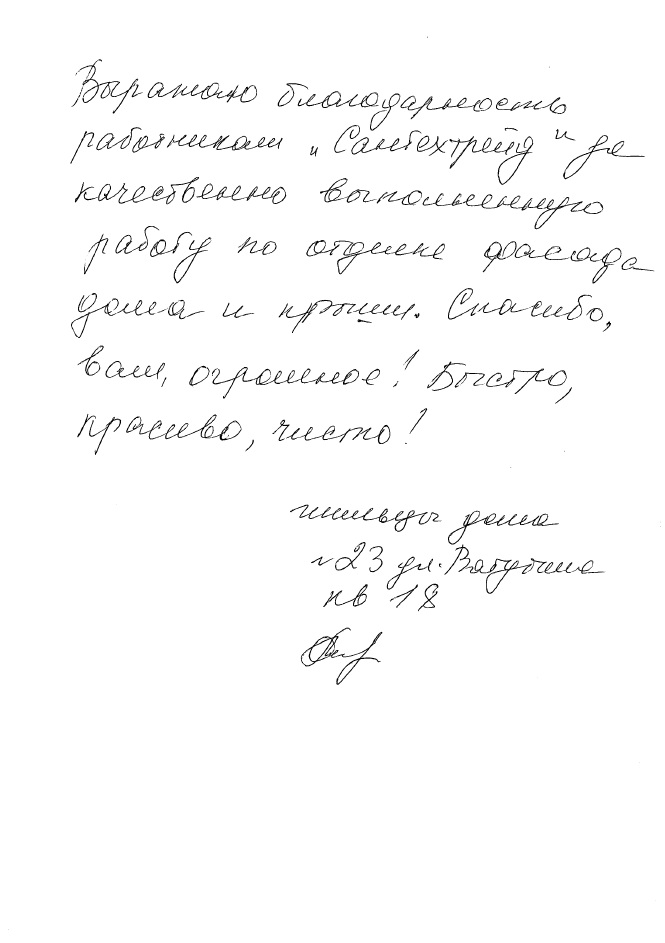 Выражаю благодарность
работникам „Сантехтрейд" за
качественно выполненную
работу по отделке фасада
дома и крыши. Спасибо,
вам, огромное! Быстро,
красиво, чисто!
жильцы дома
№23 ул. Ватутина
кв 18